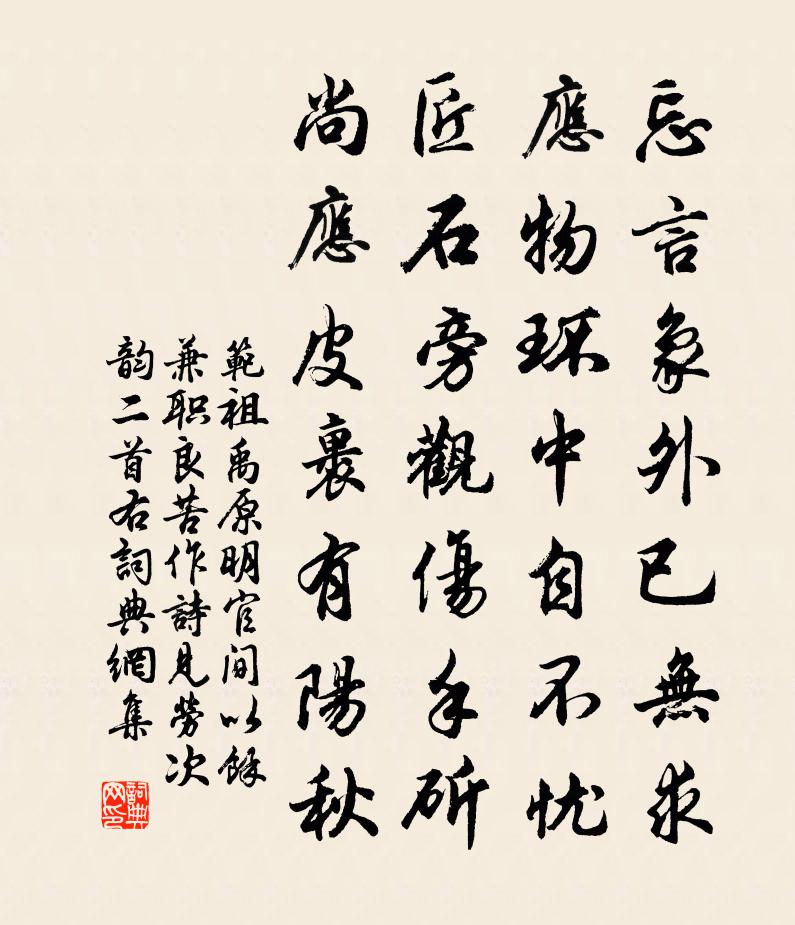 忘言象外已無求
應物環中自不忧
匠石旁觀傷手斫
尚應皮裹有陽秋
範祖禹原明官间以餘
兼职良苦作詩見勞次
韵二首右詞典網集
詞典网印